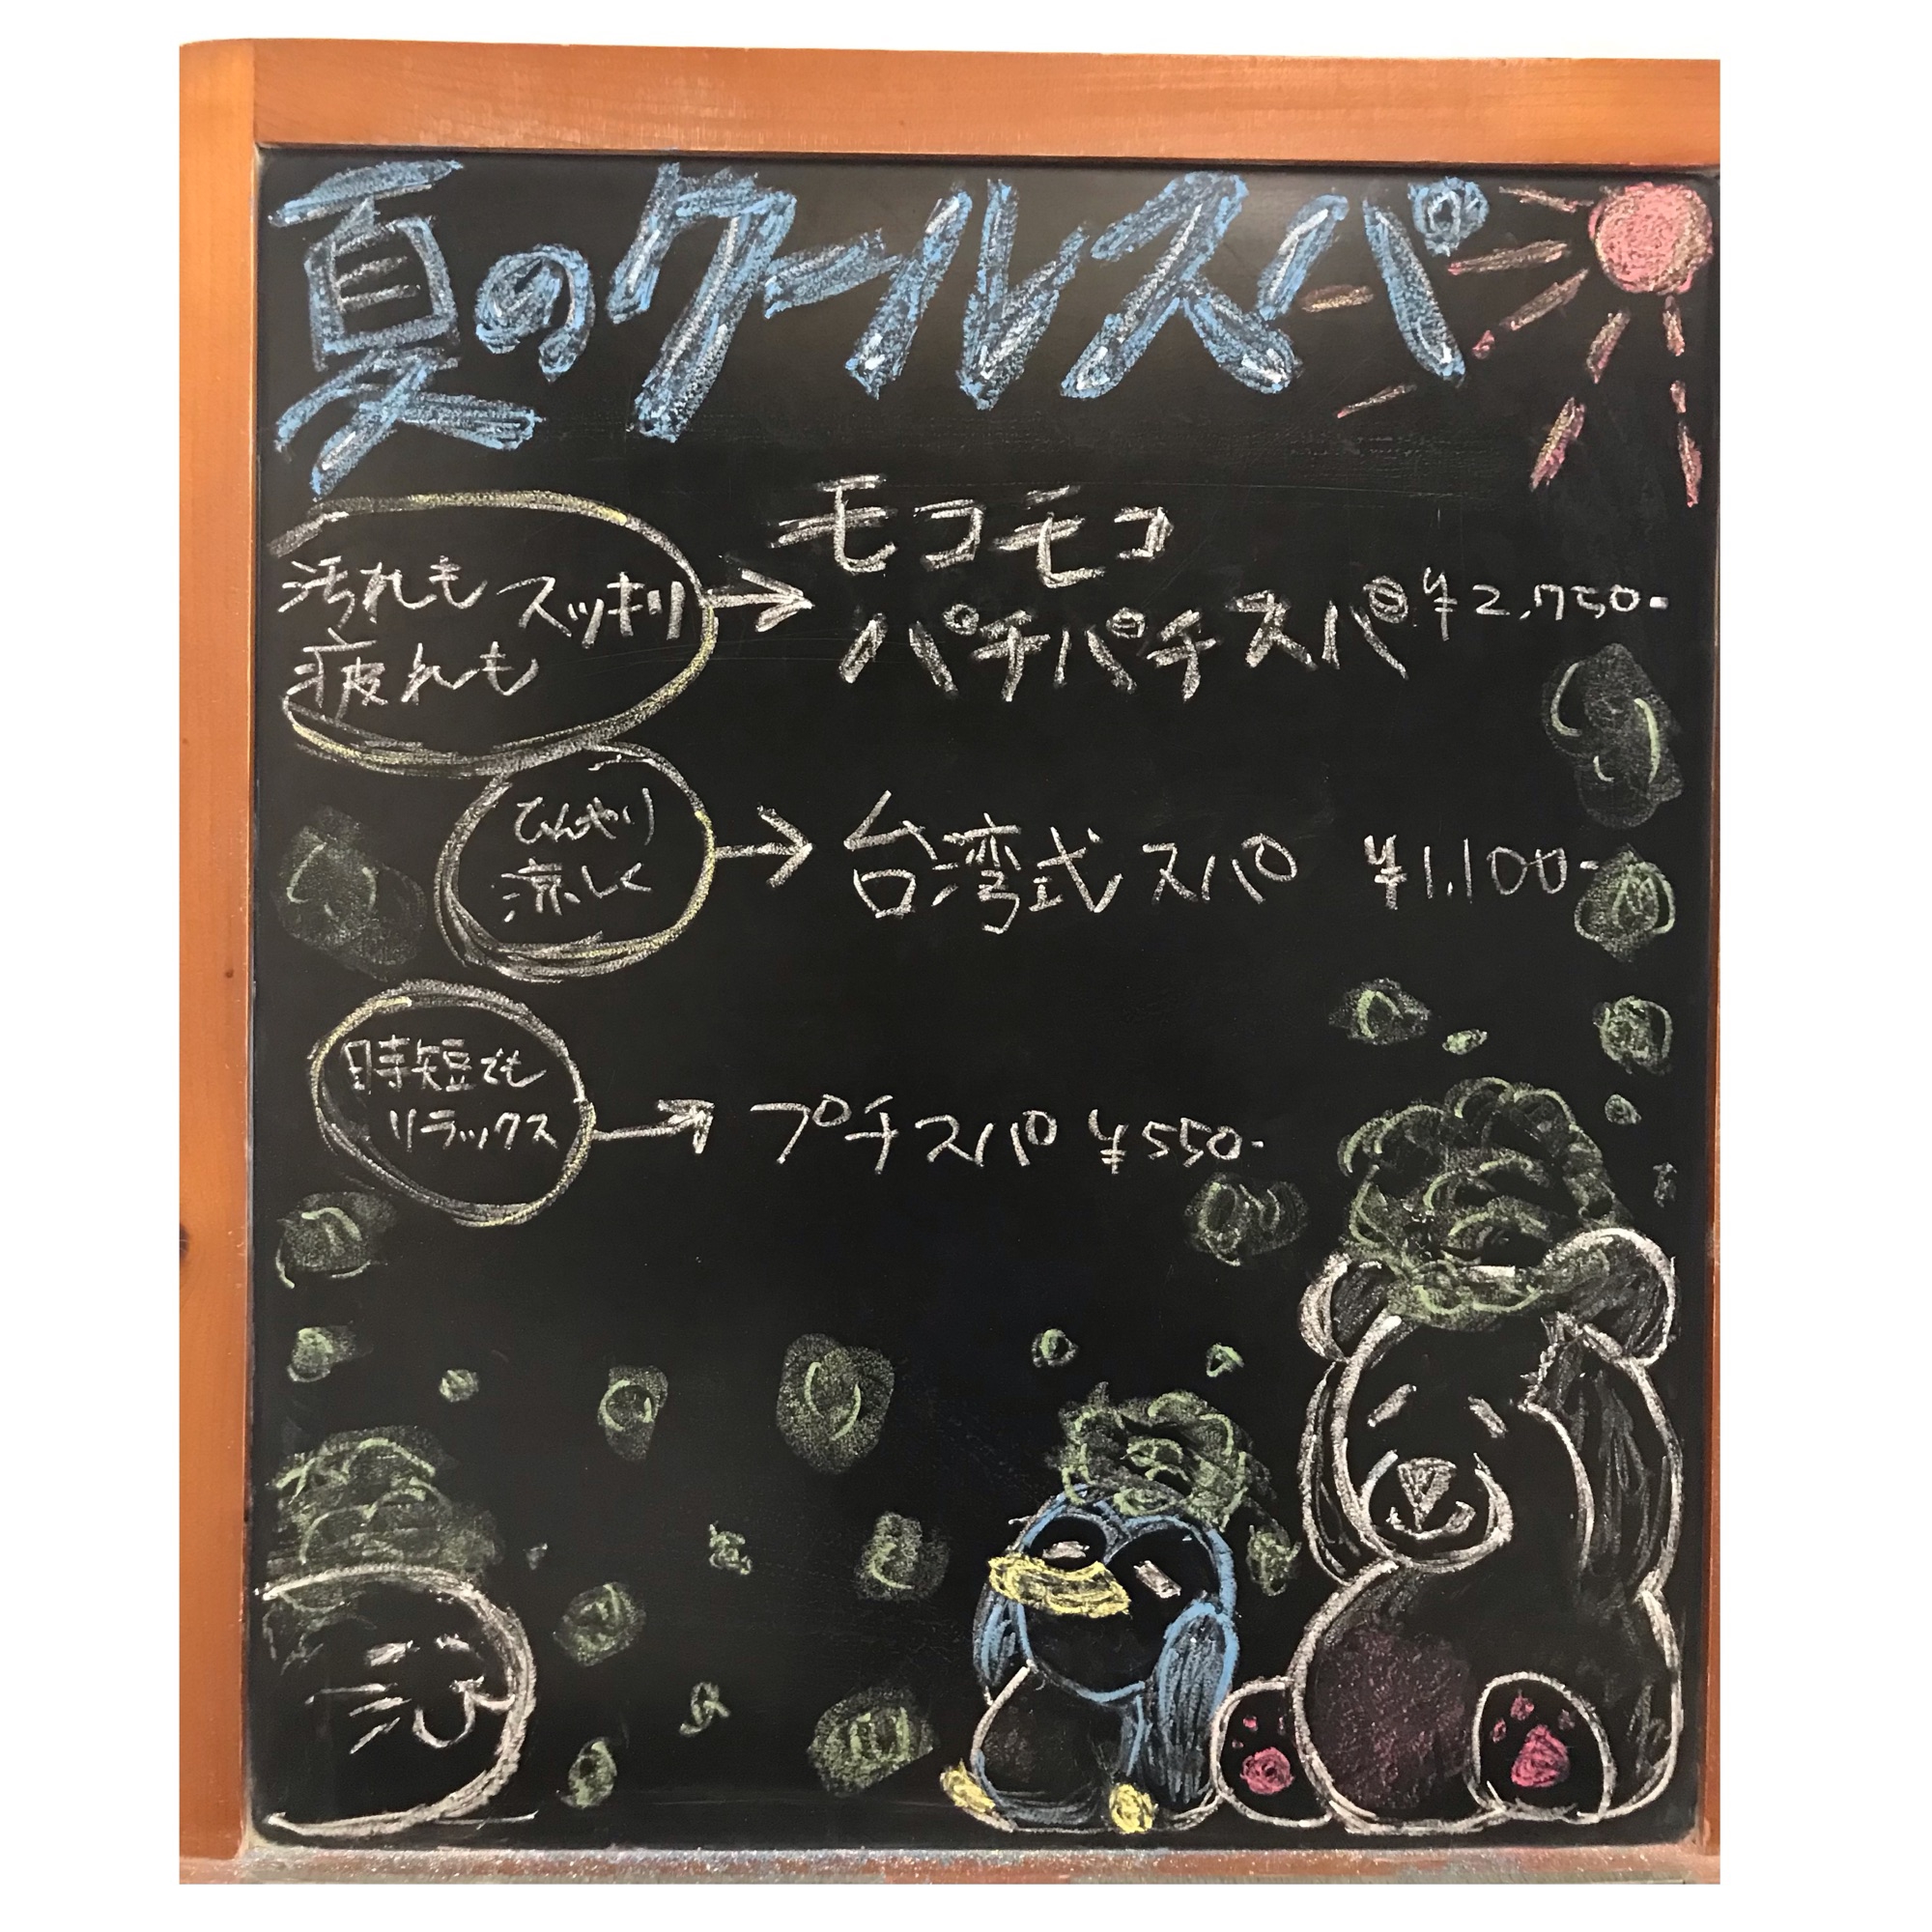 夏のクールスパ
汚れも スッキリ
疲れも
モコモコ
パチパチスパ ¥2,750-
ひんやり
涼しく
台湾式スパ ¥1,100-
時短でも
リラックス
プチスパ ¥550-